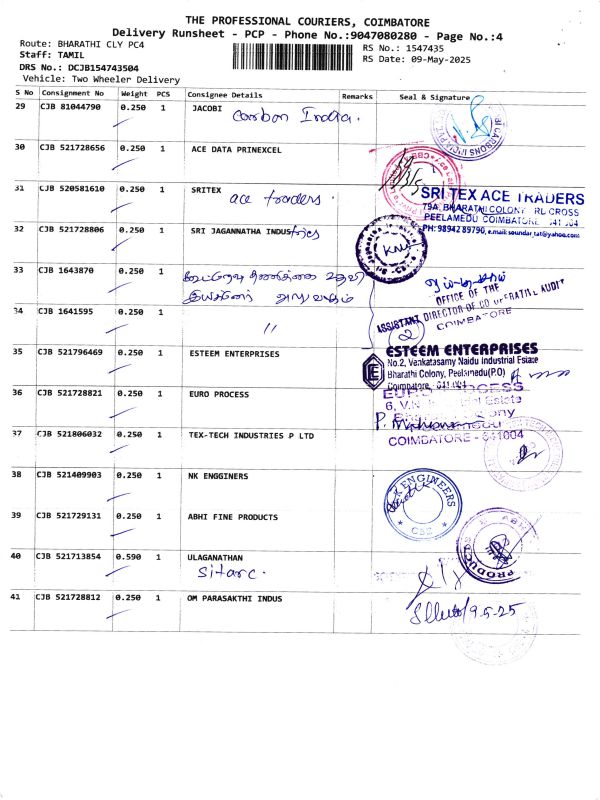 THE PROFESSIONAL COURIERS, COIMBATORE
Delivery Runsheet - PCP - Phone No.:9047080280 - Page No.:4
Route: BHARATHI CLY PC4
RS No.: 1547435
Staff: TAMIL
RS Date: 09-May-2025
DRS No.: DCJB154743504
Vehicle: Two Wheeler Delivery
S No Consignment No Weight PCS Consignee Details Remarks Seal & Signature
29 CJB 81044790 0.250 1 JACOBI
Carbon India.
30 CJB 521728656 0.250 1 ACE DATA PRINEXCEL
31 CJB 520581610 0.250 1 SRITEX
ace traders.
SRI TEX ACE TRADERS
79A, BHARATHI COLONY
CROSS
PEELAMEDU COIMBATORE
PH: 98942 89790, e.mail: soundar_tat@yahoo.com
32 CJB 521728806 0.250 1 SRI JAGANNATHA INDUSTries
33 CJB 1643870 0.250 1 கூட்டுறவு தணிக்கை உதவி
இயக்குனர் அலுவலகம்
OFFICE OF THE
ASSISTANT DIRECTOR OF CO OPERATIVE AUDIT
COIMBATORE
34 CJB 1641595 0.250 1 //
2
35 CJB 521796469 0.250 1 ESTEEM ENTERPRISES
ESTEEM ENTERPRISES
No.2, Venkatasamy Naidu Industrial Estate
Bharathi Colony, Peelamedu(P.O)
Coimbatore - 641 004
36 CJB 521728821 0.250 1 EURO PROCESS
EURO PROCESS
COIMBATORE - 641004
37 CJB 521806032 0.250 1 TEX-TECH INDUSTRIES P LTD
38 CJB 521409903 0.250 1 NK ENGGINERS
ENGINEERS
CBE
39 CJB 521729131 0.250 1 ABHI FINE PRODUCTS
PRODUCTS
40 CJB 521713854 0.590 1 ULAGANATHAN
Sitarc.
41 CJB 521728812 0.250 1 OM PARASAKTHI INDUS
9-5-25